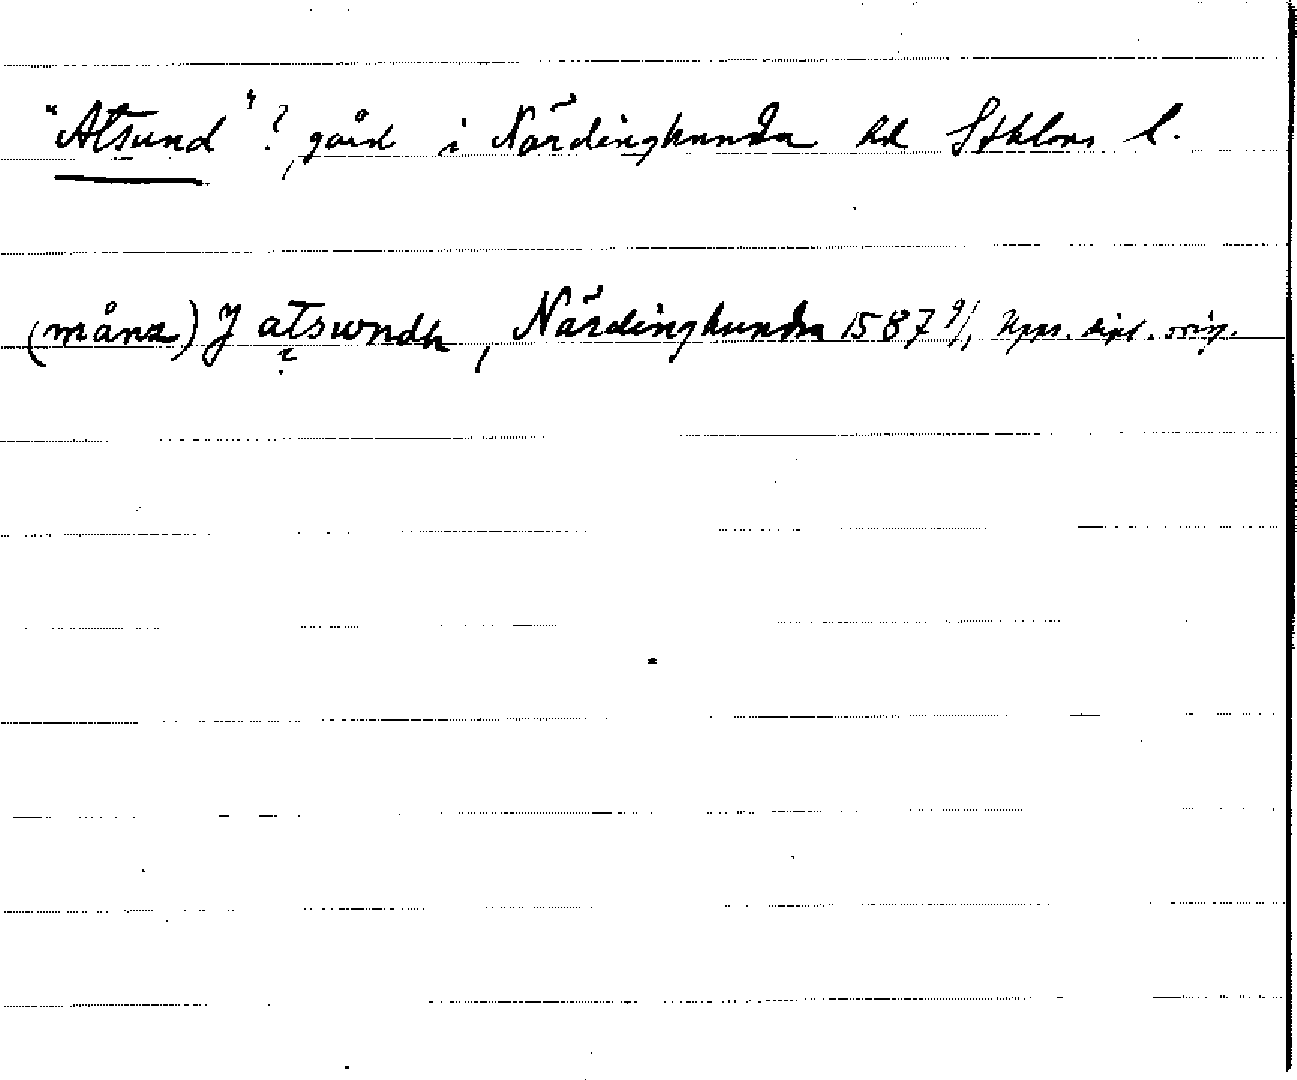 "Atsund"?, gård i Närdinghundra hd Sthlms l.
(måns) J atswndh, Närdinghundra 1587 9/1 Upps. dipl. orig.